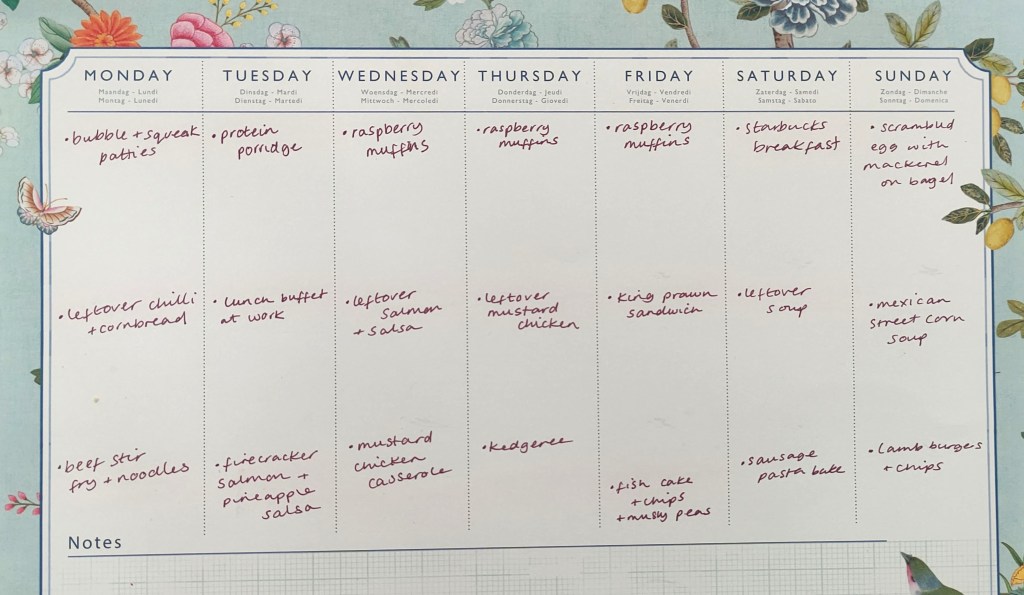 MONDAY
Maandag - Lundi
Montag - Lunedi
TUESDAY
Dinsdag - Mardi
Dienstag - Martedi
WEDNESDAY
Woensdag - Mercredi
Mittwoch - Mercoledi
THURSDAY
Donderdag - Jeudi
Donnerstag - Giovedi
FRIDAY
Vrijdag - Vendredi
Freitag - Venerdi
SATURDAY
Zaterdag - Samedi
Samstag - Sabato
SUNDAY
Zondag - Dimanche
Sonntag - Domenica
• bubble + squeak
patties
• protein
porridge
• raspberry
muffins
• raspberry
muffins
• raspberry
muffins
• starbucks
breakfast
• scrambled
egg with
mackerel
on bagel
• leftover chilli
+ cornbread
• lunch buffet
at work
• leftover
salmon
+ salsa
• leftover
mustard
chicken
• king prawn
sandwich
• leftover
soup
• mexican
street corn
soup
• beef stir
fry + noodles
• firecracker
salmon +
pineapple
salsa
• mustard
chicken
casserole
• kedgeree
• fish cake
+ chips
+ mushy peas
• sausage
pasta bake
• lamb burgers
+ chips
Notes